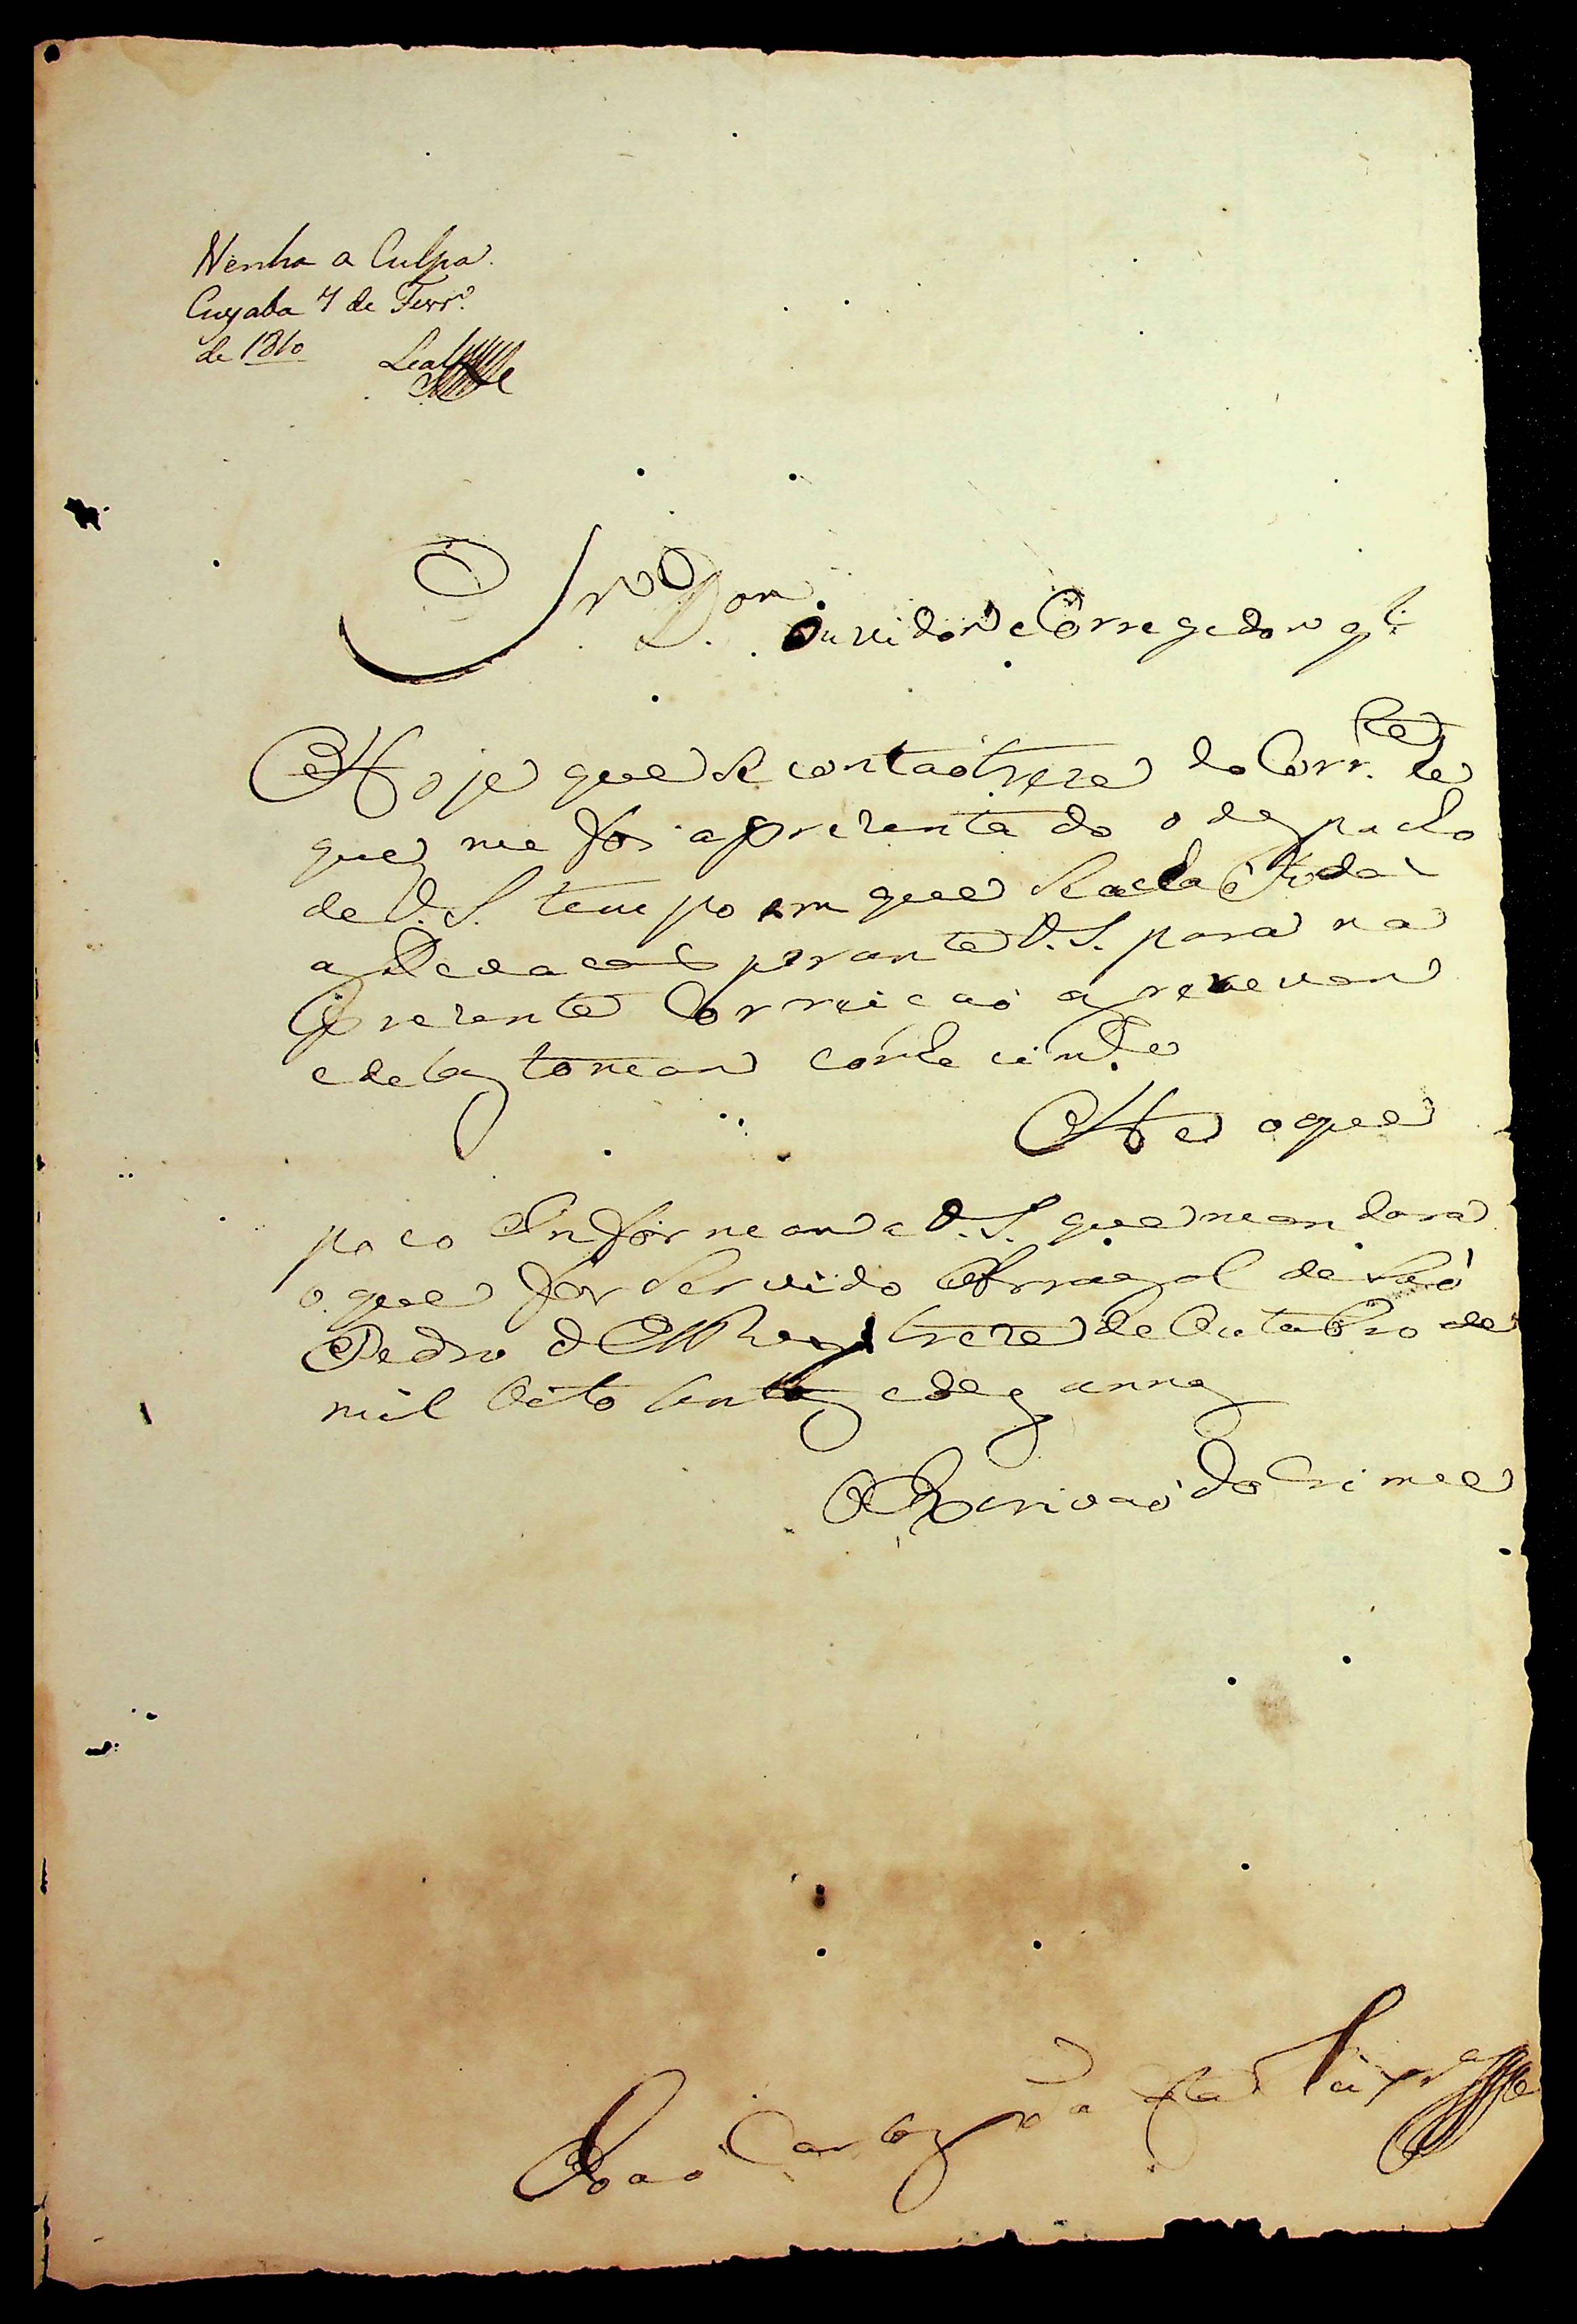 Venha a Culpa.
Cuyaba 7 de Fevr.º
de 1810 Leal
Snr. Dor.
Ouvidor e Corregedor g.l
Hoje que se contaõ treze do Corr.te
que me foi aprezentado o despacho
de V. S. tempo em que se acha
perante V. S. para na
prezente Correicaõ
e dellas tomar conhecim.to
He o que
poco Informar a V. S. que mandara
o que for Servido Arrayal de Saõ
Pedro d El Rey treze de Outubro de
mil Oito Centos e des annos
O Escrivaõ do Crime
Joaõ Carlos